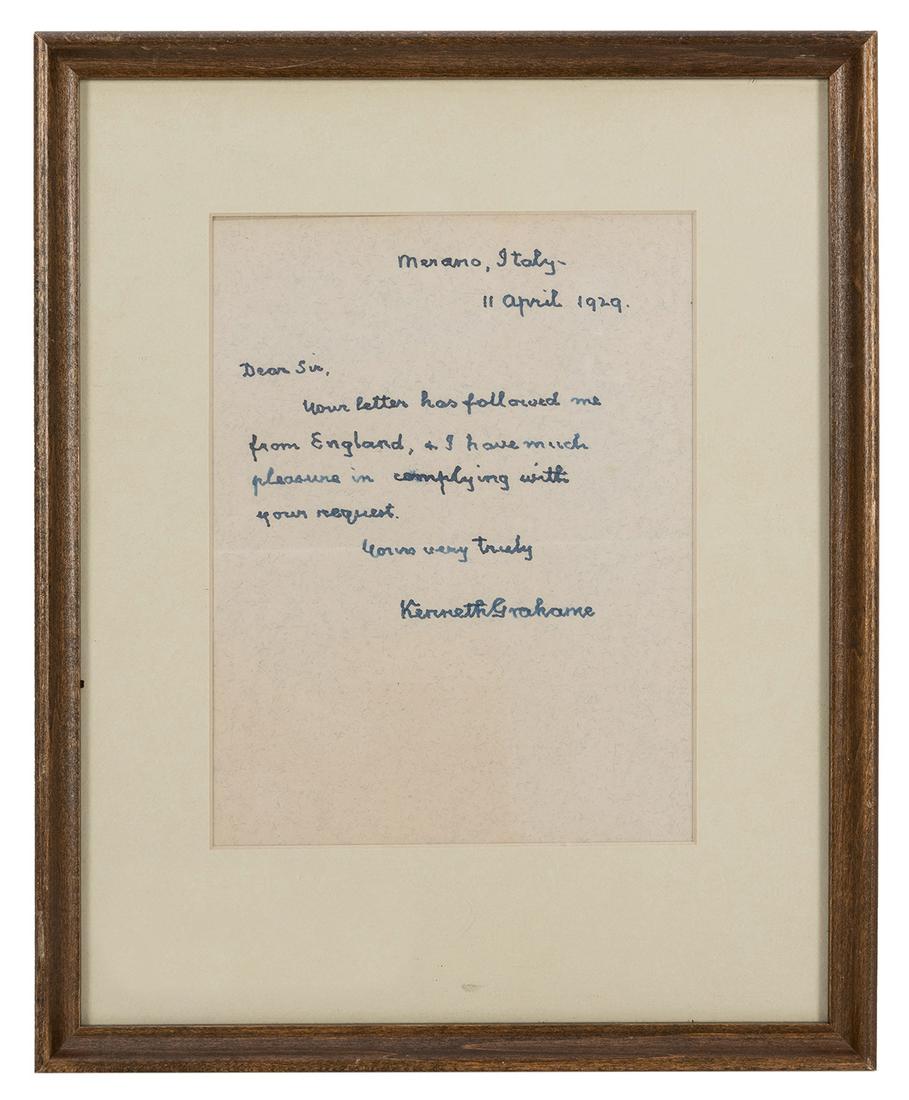 Merano, Italy-
11 April 1929.
Dear Sir,
Your letter has followed me
from England, & I have much
pleasure in complying with
your request.
Yours very truly
Kenneth Grahame